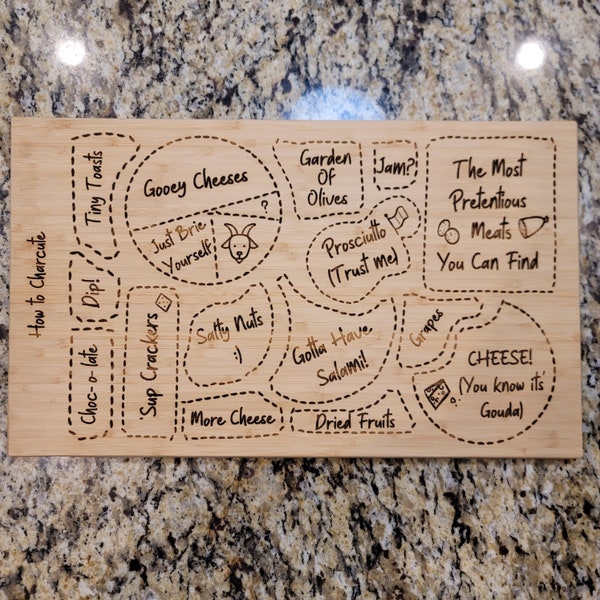 How to Charcute
Tiny Toasts
Dip!
Choc-o-late
Gooey Cheeses
?
Just Brie
Yourself
'Sup Crackers
Salty Nuts
:)
More Cheese
Garden
Of
Olives
Jam?
Prosciutto
(Trust me)
Gotta Have
Salami!
Dried Fruits
Grapes
The Most
Pretentious
Meats
You Can Find
CHEESE!
(You know it's
Gouda)